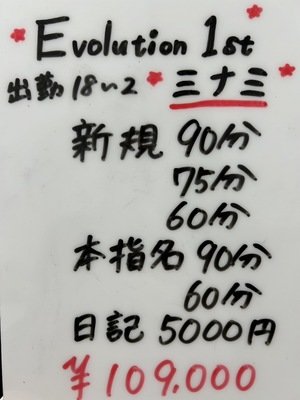 Evolution 1st
出勤 18〜2 三ナ三
新規 90分
75分
60分
本指名 90分
60分
日記 5000円
¥109,000